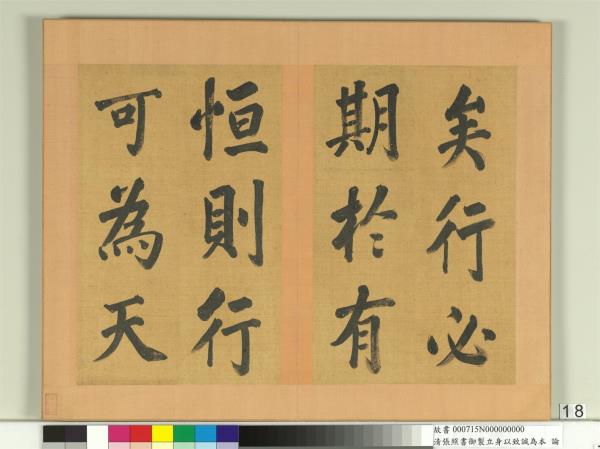 矣行必
期於有
恒則行
可為天
18
故書 000715N000000000
清張照書御製立身以致誠為本 論